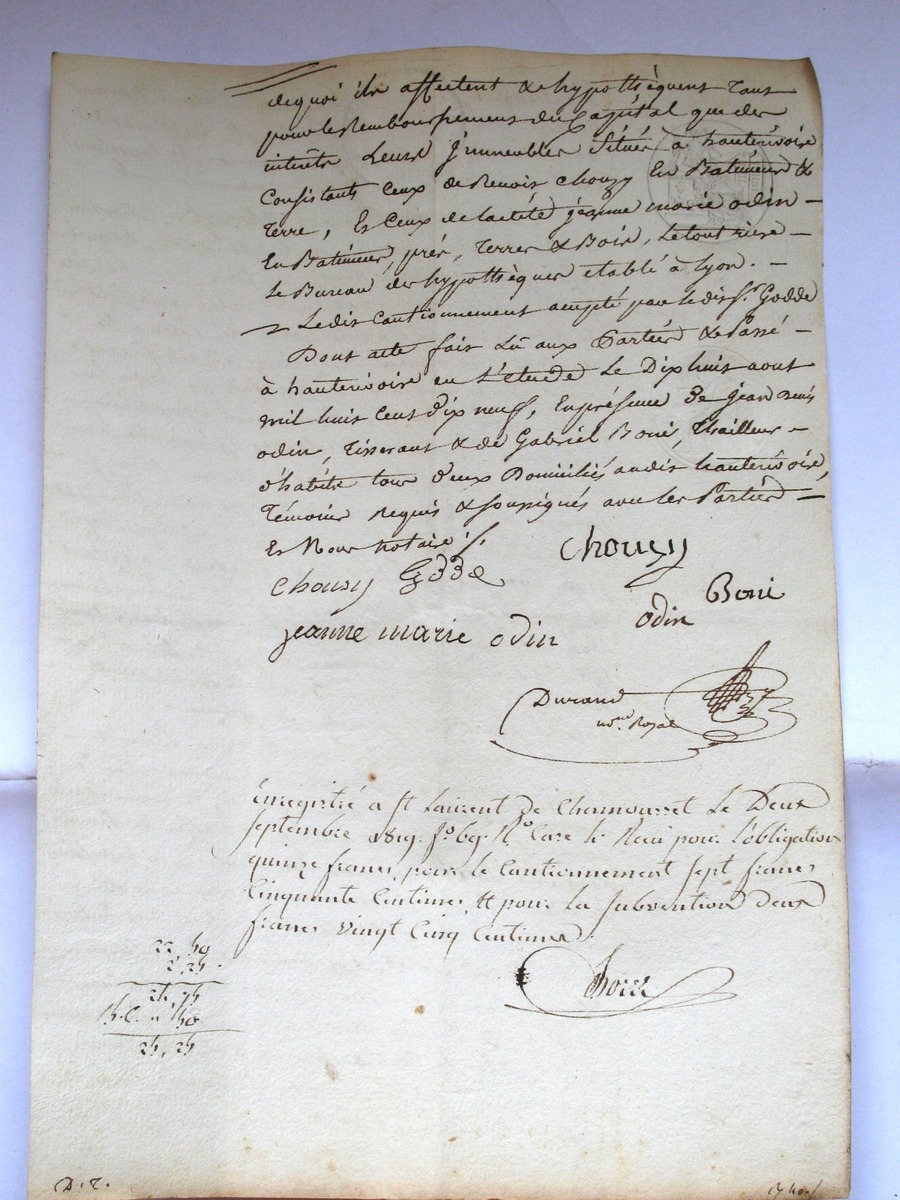 dequoi ils affectent & hypothèquent tant
pour le Remboursement du Capital que des
intérêts Leurs Jmmeubles Situés à hauterivoire
Consistants Ceux de Benoit Chouzy En Batiments &
terre, Et Ceux de ladite jeanne marie odin —
En Batiments, prés, terres & Bois, Le tout riere —
Le Bureau des hypothèques etabli à Lyon. —
Ledit Cautionnement accepté par le dit Sr. Godde
Dont acte fait Lû aux Parties & Passé —
à hauterivoire en L'étude Le Dix huit aout
mil huit Cent dix neuf, En présence de jean
odin, Tisserant & de Gabriel Boni, Thailleur —
d'habits tous deux Domiciliés audit hauterivoire,
Témoins Requis & soussignés avec les Parties —
Et Nous notaire ./.
Chouzy
Chouzy Godde
Boni
jeanne marie odin
odin
Durand
nore. Royal
Enregistré a St Laurent de Chamousset Le Deux
septembre 1819. fo. 69. Ro. Case 4. Recu pour l'obligation
quinze francs, pour le Cautionnement sept francs
Cinquante Centimes, et pour la subvention deux
francs vingt Cinq Centimes.
22, 50
2, 25
24, 75
50
25, 25
D. T.